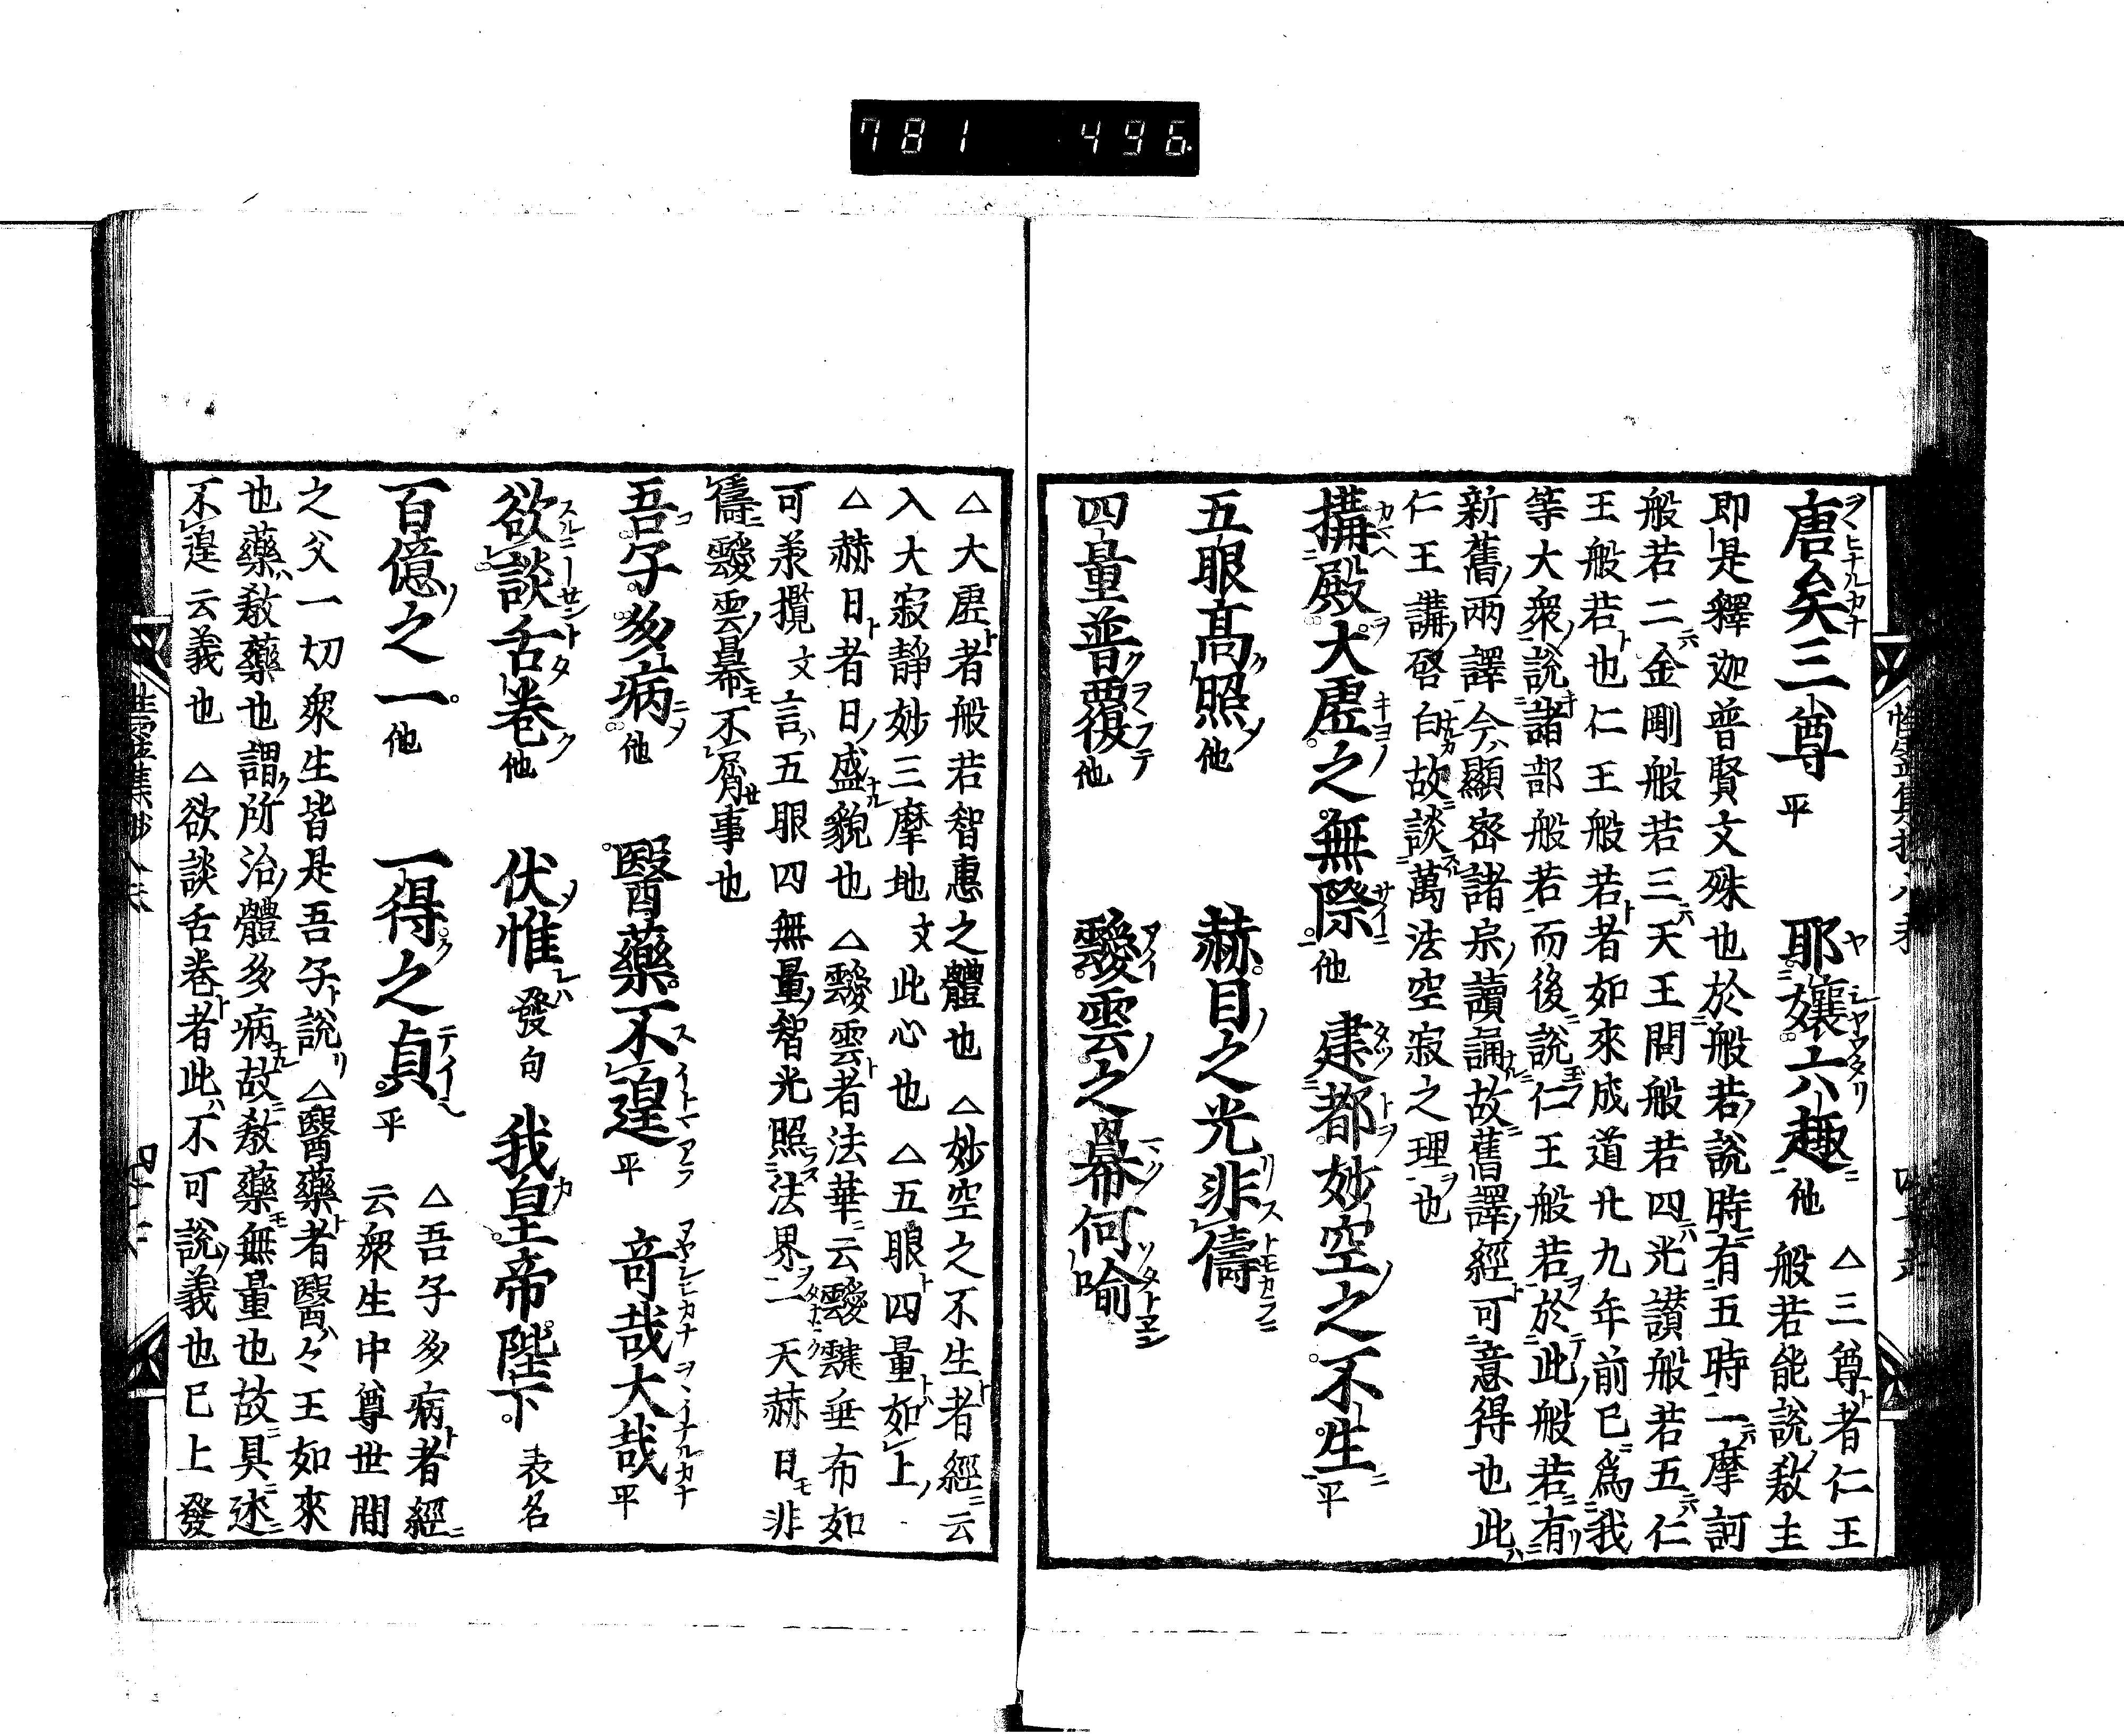 781 496
唐矣三尊 平 耶孃六趣 他 △三尊者仁王
般若能說敎主
即是釋迦普賢文殊也於般若說時有五時一摩訶
般若二金剛般若三天王問般若四光讃般若五仁
王般若也仁王般若者如來成道廿九年前已爲我
等大衆說諸部般若而後說仁王般若於此般若有
新舊兩譯今顯密諸宗讀誦故舊譯經可意得也此
仁王講啓白故談萬法空寂之理也
搆殿大虛之無際 他 建都妙空之不生 平
五眼高照 他 赫日之光非儔
四量普覆 他 靉雲之幕何喻
△大虛者般若智惠之體也 △妙空之不生者經云
入大寂靜妙三摩地文此心也 △五眼四量如上
△赫日者日盛貌也 △靉雲者法華云靉靆垂布如
可承攬文言五眼四無量智光照法界二天赫日非
儔靉雲幕不屑事也
吾子多病 他 醫藥不遑 平 奇哉大哉 平
欲談舌卷 他 伏惟 發句 我皇帝陛下 表名
百億之一 他 一得之貞 平 △吾子多病者經
云衆生中尊世間
之父一切衆生皆是吾子說 △醫藥者醫々王如來
也藥敎藥也謂所治體多病故敎藥無量也故具述
不遑云義也 △欲談舌卷者此不可說義也已上發